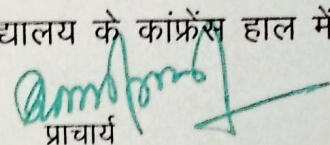 द्यालय के कांफ्रेंस हाल में
प्राचार्य